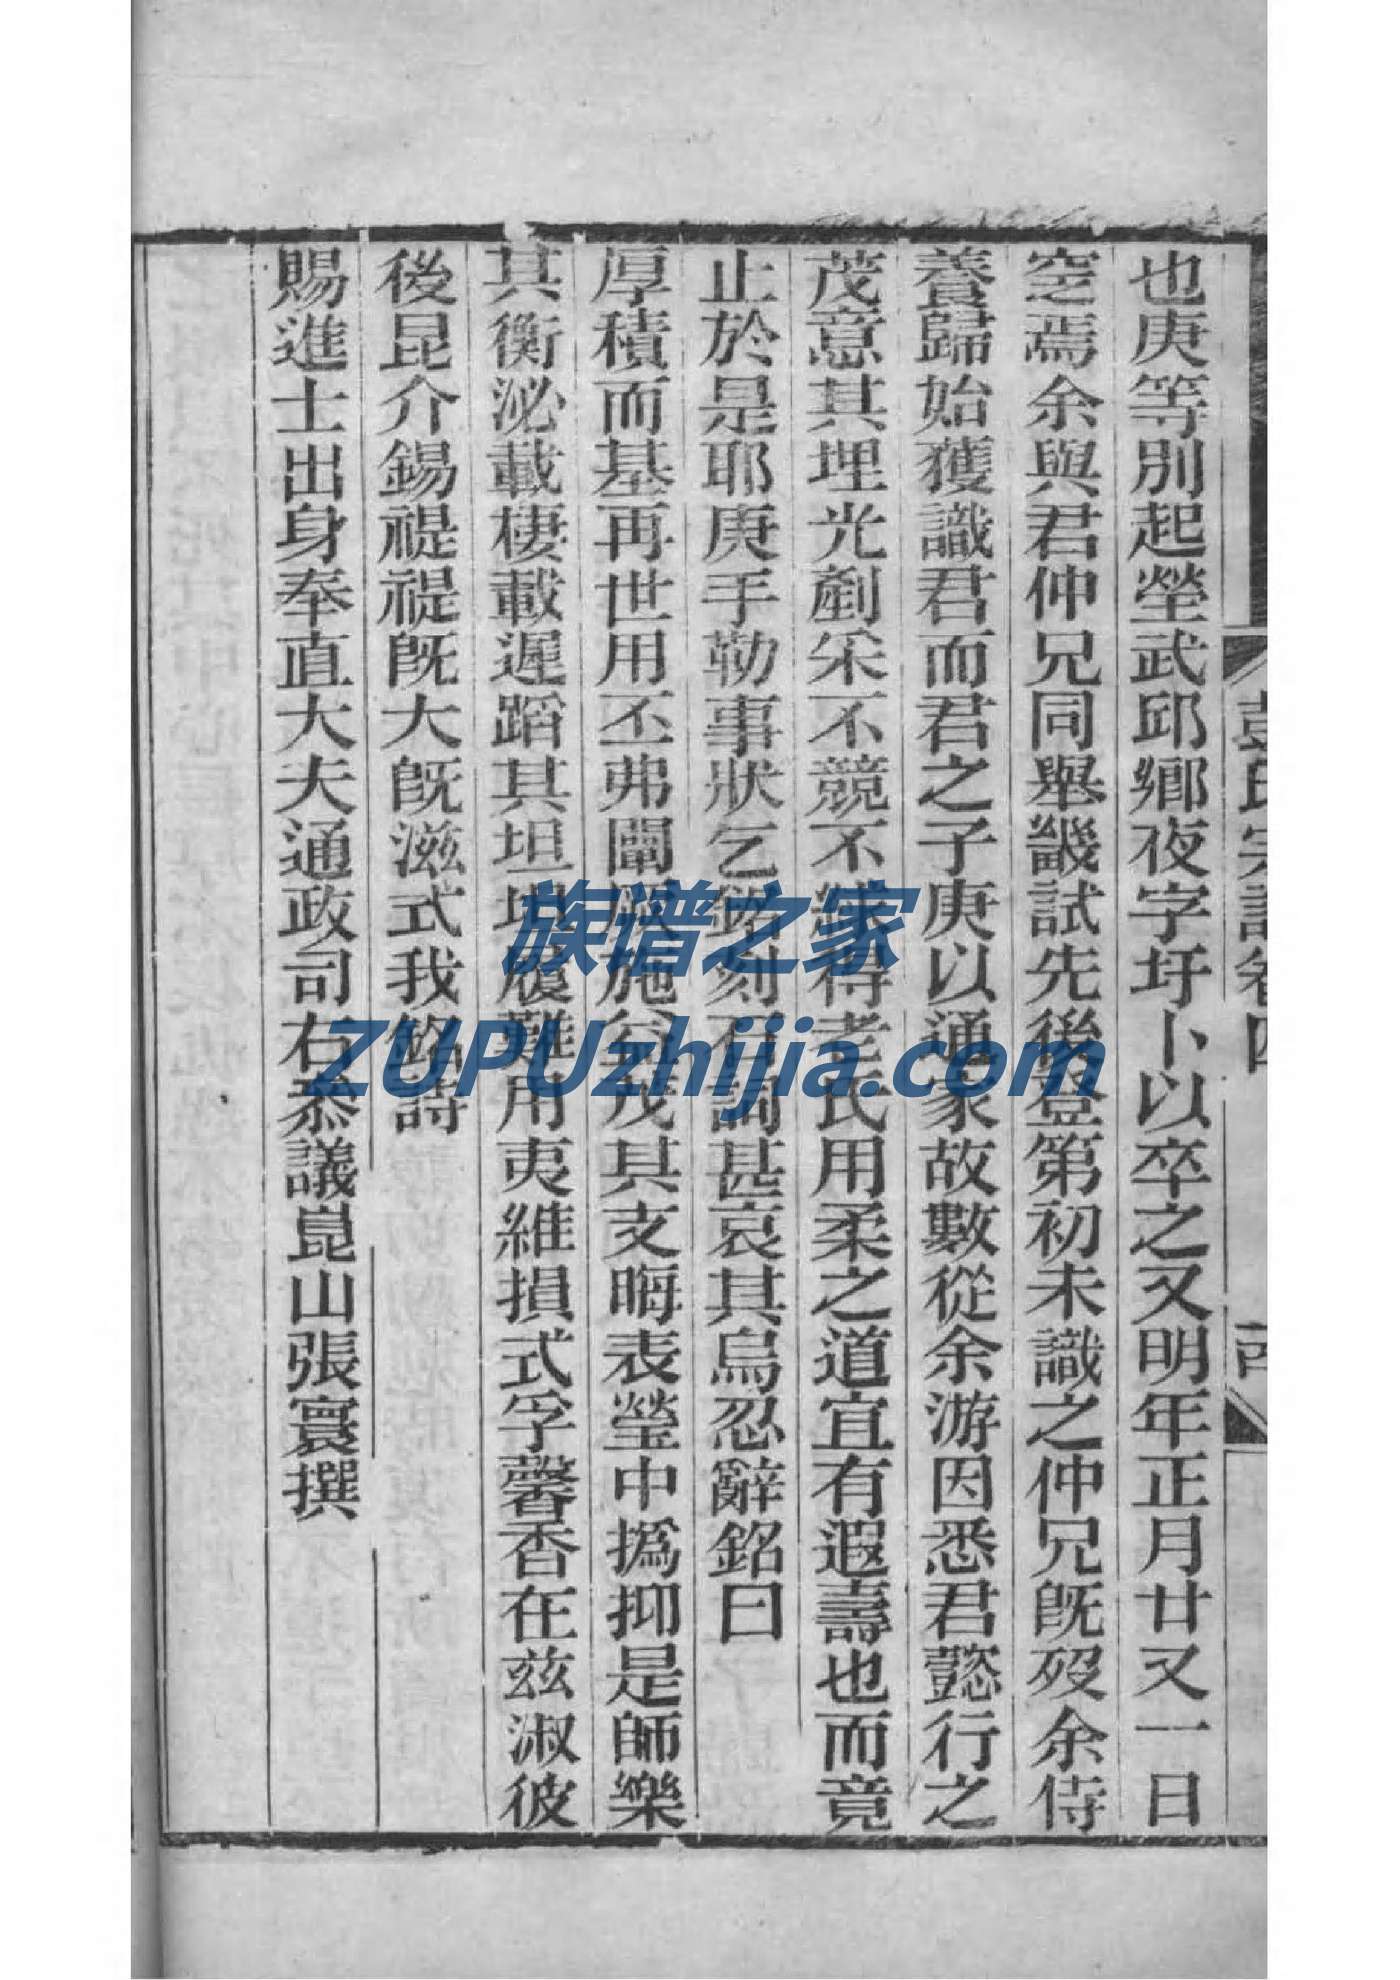 也庚等別起塋武邱鄉夜字圩卜以卒之又明年正月廿又一日
窆焉余與君仲兄同舉畿試先後登第初未識之仲兄旣歿余侍
養歸始獲識君而君之子庚以通家故數從余游因悉君懿行之
茂意其埋光剷采不競不絿得老氏用柔之道宜有遐壽也而竟
止於是耶庚手勒事狀乞銘刻石詞甚哀其烏忍辭銘曰
厚積而基再世用丕弗闡厥施益茂其支晦表瑩中撝抑是師樂
其衡泌載棲載遲蹈其坦場履難用夷維損式孚馨香在茲淑彼
後昆介錫禔禔旣大旣滋式我銘詩
賜進士出身奉直大夫通政司右叅議崑山張寰撰
彭氏宗譜卷四
族谱之家
ZUPUzhijia.com